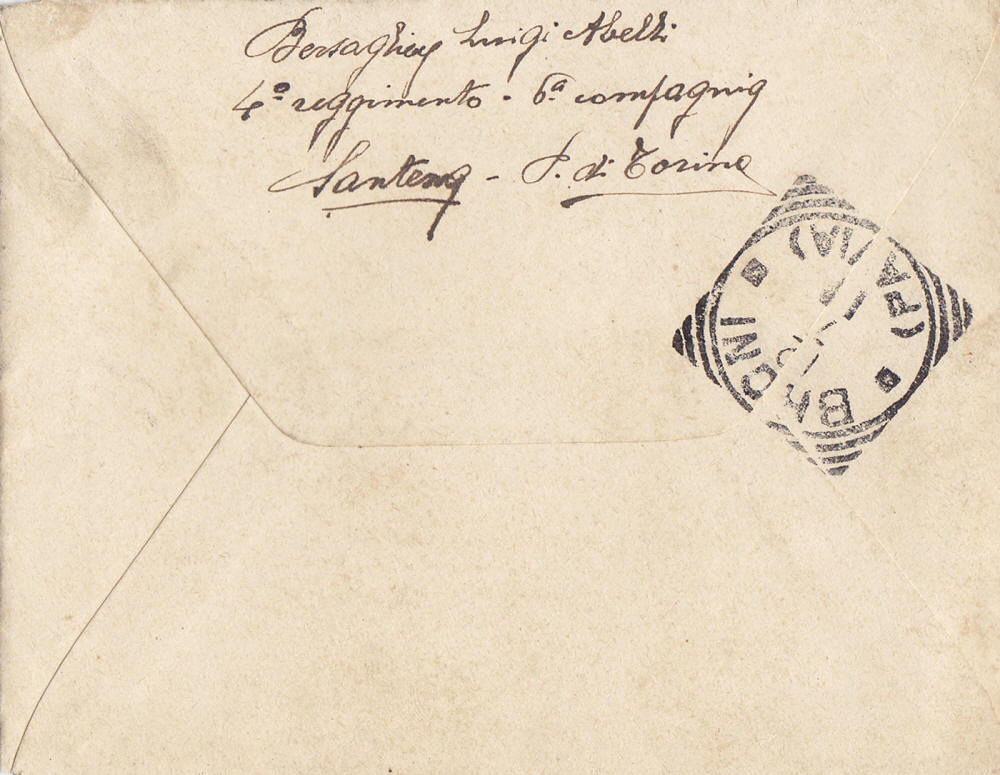 Bersagliere Luigi Abelli
4º reggimento - 6ª compagnia
Santena - P. di Torino
BRONI
(PAVIA)